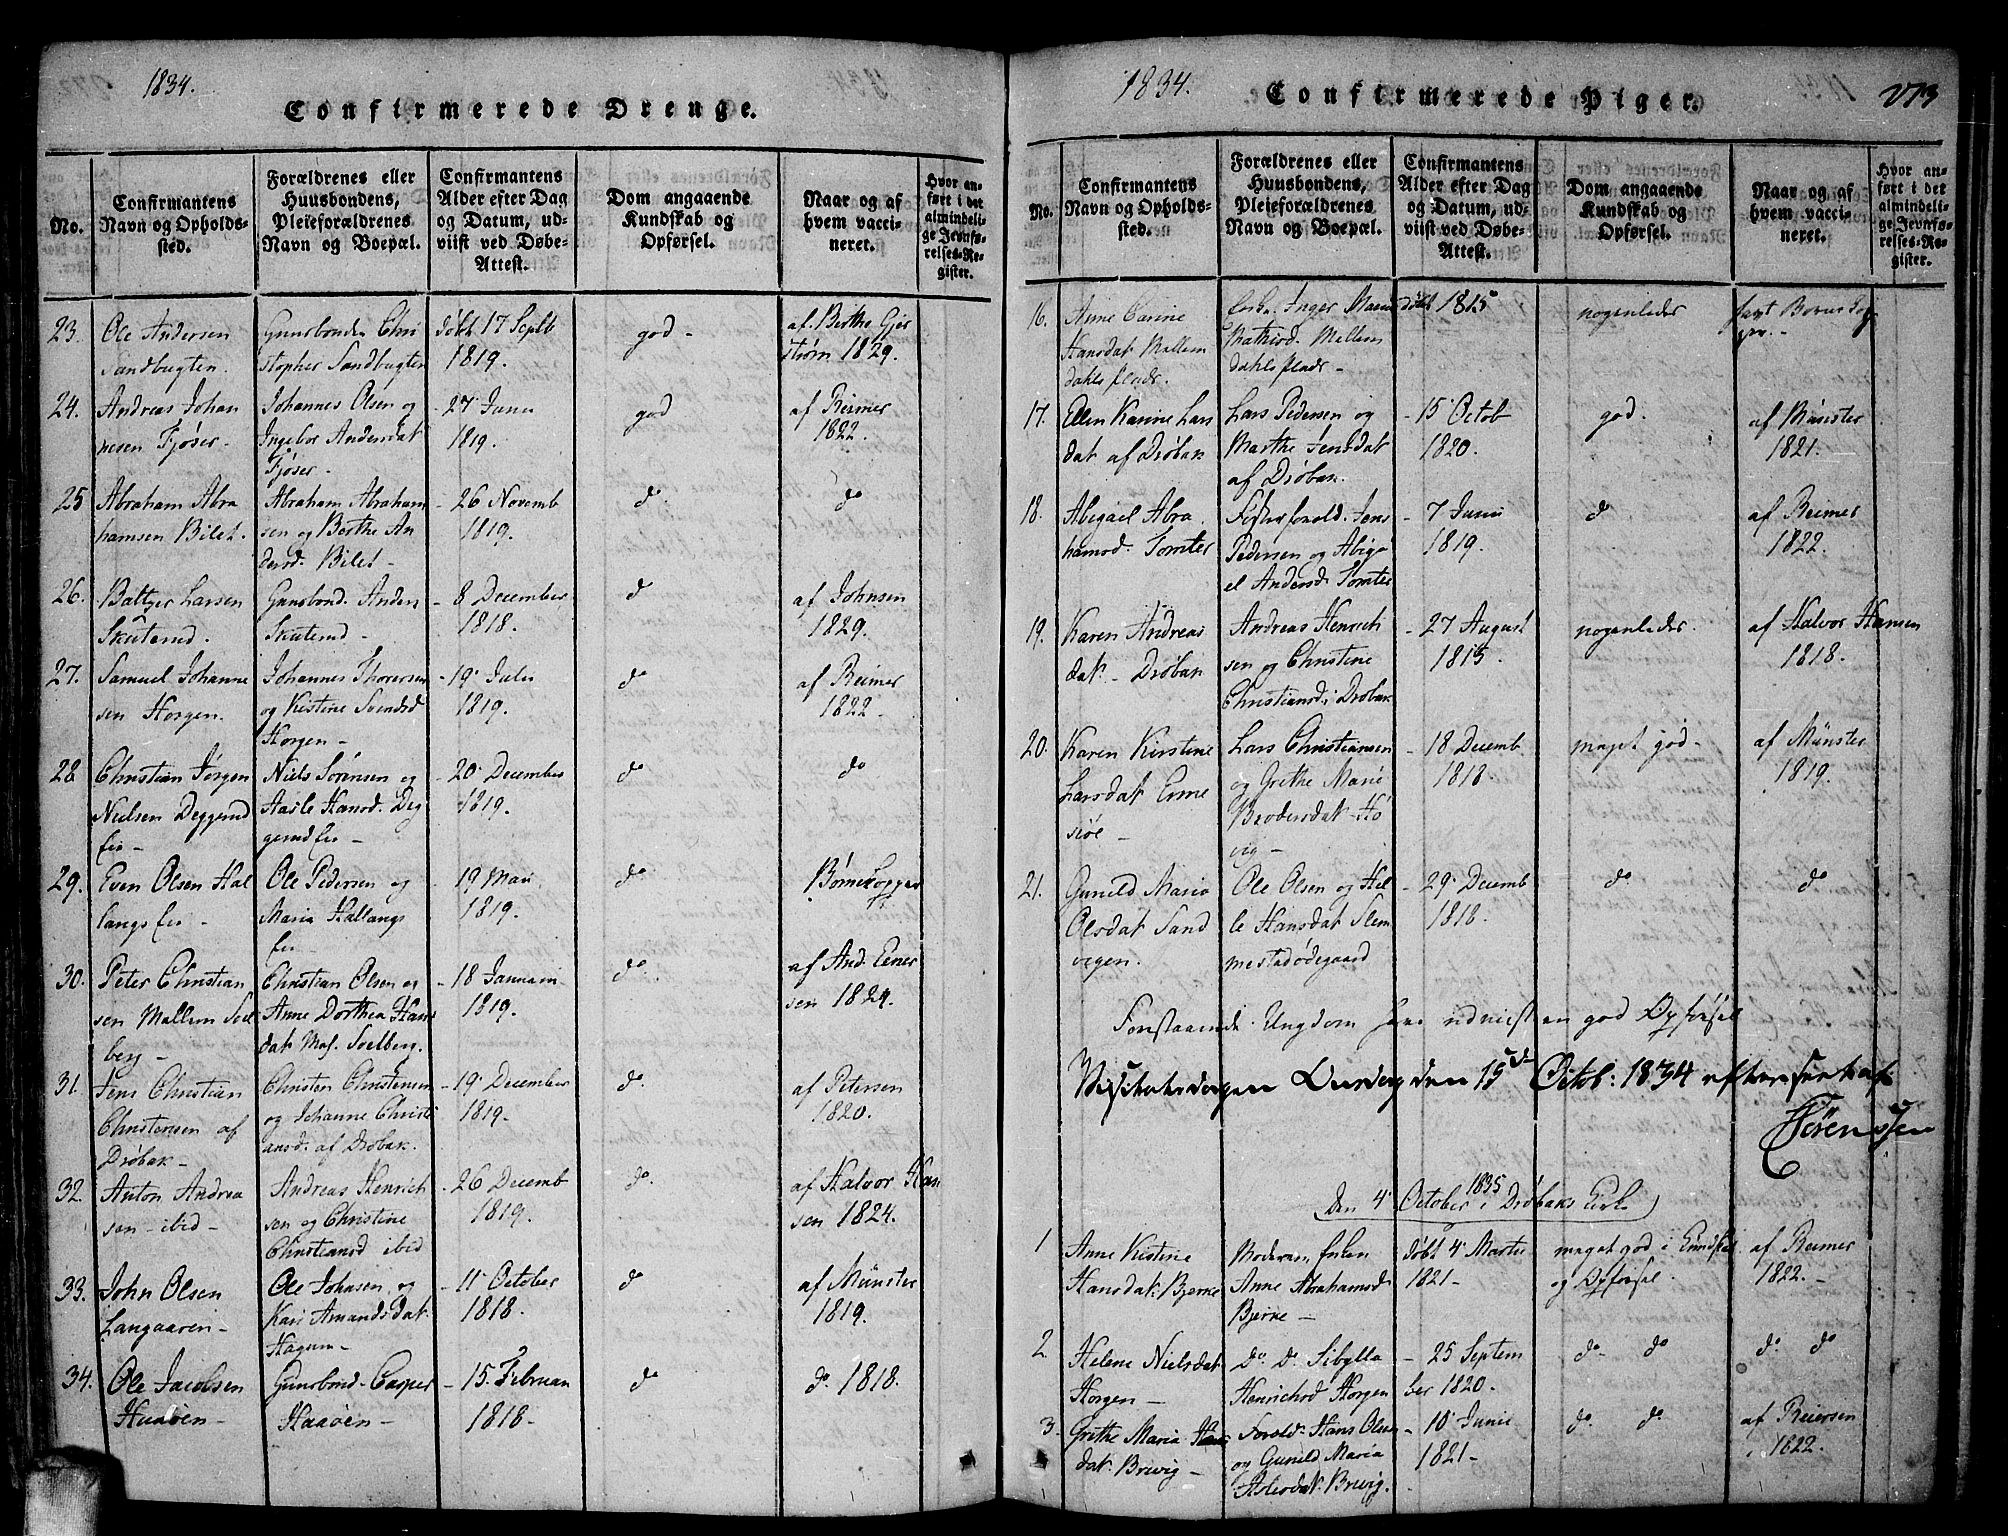 1834.
Confirmerede Drenge.
No.
Confirmantens Navn og Opholds-sted.
Forældrenes eller Huusbondens, Pleieforældrenes Navn og Boepæl.
Confirmantens Alder efter Dag og Datum, ud-viist ved Døbe-Attest.
Dom angaaende Kundskab og Opførsel.
Naar og af hvem vacci-neret.
Hvor an-ført i det almindeli-ge Jevnfø-relses-Re-gister.
23. Ole Andersen Sandbugten.
Huusbonden Chri stopher Sandbugten
døbt 17 Septb 1819.
god -
af Birthe Gjer strøm 1829.
24. Andreas Johan nesen Fjøser.
Johannes Olsen og Ingebor Andersdat Fjøser -
- 27 Junii 1819.
god
af Reimer 1822.
25 Abraham Abra hamsen Bilet.
Abraham Abraham sen og Berthe An dersd. Bilet -
- 26 Novemb 1819.
do
do
26. Baltzer Larsen Skuterud.
Huusbond. Anders Skuterud -
- 8 December 1818.
do
af Johnsen 1829.
27. Samuel Johanne sen Horgen.
Johannes Thoresen og Kistine Svendsd Horgen -
- 19 Julii 1819.
do
af Reimer 1822.
28 Christian Jørgen Nielsen Deggerud eie -
Niels Sørensen og Aasle Hansd. Deg gerud eie -
- 20 December 1819.
do
do
29. Even Olsen Hal langs eie -
Ole Pedersen og Maria Hallangs eie -
- 19 Mai 1819.
do
Børnekopper
30. Peter Christian sen Mallem Soel berg -
Christian Olsen og Anne Dorthea Hans dat Mal. Soelberg.
- 18 Januarii 1819.
do
af And. Einer sen 1824.
31. Jens Christian Christensen af Drøbak -
Christen Christensen og Johanne Christi ansd. af Drøbak.
- 19 December 1819.
do
af Petersen 1820.
32. Anton Andrea sen - ibid -
Andreas Henrich sen og Christine Christiansd ibid
- 26 Decemb 1819.
do.
af Halvor Han sen 1824.
33. John Olsen Langaaren -
Ole Johasen og Kari Amundsdat. Hagum -
- 11 October 1818.
do
af Münster 1819.
34. Ole Jacobsen Haaøen -
Huusbond. Casper Haaøen -
- 15. Februari 1818 -
do
do. 1818.
1834.
Confirmerede Piger.
273
No.
Confirmantens Navn og Opholds-sted.
Forældrenes eller Huusbondens, Pleieforældrenes Navn og Boepæl.
Confirmantens Alder efter Dag og Datum, ud-viist ved Døbe-Attest.
Dom angaaende Kundskab og Opførsel.
Naar og af hvem vacci-neret.
Hvor an-ført i det almindeli-ge Jevnfø-relses-Re-gister.
16. Anne Carine Hansdat Mellem dahls plads.
Enke. Inger Marie Mathisd. Mellem dahls plads -
døbt 1815
nogenledes
havt Børnekop per. -
17. Ellen Karine Lars dat af Drøbak
Lars Pedersen og Marthe Jensdat af Drøbak.
- 15 Octob 1820.
god.
af Münster 1821.
18. Abigael Abra hamsd. Tomter
Fosterforæld. Jens Pedersen og Abiga el Andersd. Tomter
- 7 Junii 1819.
do
af Reimer 1822.
19. Karen Andreas dat. - Drøbak
Andreas Henrich sen og Christine Christiansd. i Drøbak
- 27 August 1815.
nogenledes.
af Halvor Hansen 1818.
20. Karen Kirstine Larsdat Emme siøe -
Lars Christiansen og Grethe Marie Brodersdat Hø vig -
- 18 Decemb 1818.
meget god -
af Münster 1819.
21. Gunild Maria Olsdat Sand vegen.
Ole Olsen og Hel le Hansdat Slem mestadødegaard
- 29 Decemb 1818.
do
do
Forestaaende Ungdom have udviist en god Opførsel
Visitatsdagen Onsdag den 15de Octob: 1834 efterseet af
Sørenssen
Den 4 October 1835 i Drøbaks Kirke
1 Anne Kistine Hansdat. Bjerke
Moderen, Enken Anne Abrahamsd Bjerke -
døbt 4 Martii 1821 -
meget god i Kundskab og Opførsel.
af Reimer 1822. -
2. Helene Nielsdat Horgen -
do. do. Sibylla Henrichsd Horgen
- 25 Septem ber 1820.
do do
do do
3. Grethe Maria Hans dat. Brevig -
Foræld. Hans Olsen og Gunild Maria Halvorsdat. Brevig.
- 10 Junii 1821 -
do do
af Reiersen i 1822.